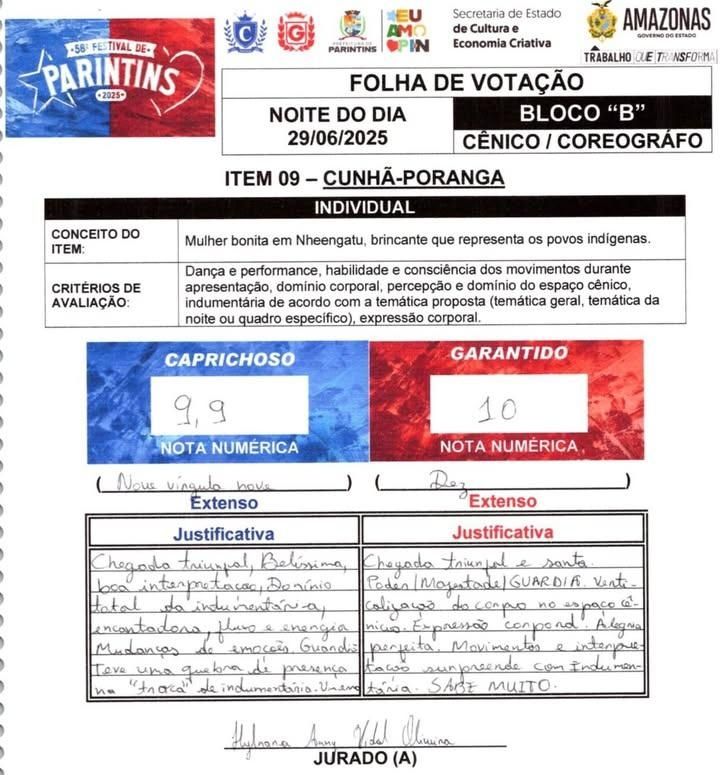 58º FESTIVAL DE
PARINTINS
2025
C
G
PREFEITURA DE
PARINTINS
EU
AMO
PIN
Secretaria de Estado
de Cultura e
Economia Criativa
AMAZONAS
GOVERNO DO ESTADO
TRABALHO QUE TRANSFORMA
FOLHA DE VOTAÇÃO
NOITE DO DIA
29/06/2025
BLOCO “B”
CÊNICO / COREOGRÁFO
ITEM 09 – CUNHÃ-PORANGA
INDIVIDUAL
CONCEITO DO
ITEM:
Mulher bonita em Nheengatu, brincante que representa os povos indígenas.
CRITÉRIOS DE
AVALIAÇÃO:
Dança e performance, habilidade e consciência dos movimentos durante
apresentação, domínio corporal, percepção e domínio do espaço cênico,
indumentária de acordo com a temática proposta (temática geral, temática da
noite ou quadro específico), expressão corporal.
CAPRICHOSO
9,9
NOTA NUMÉRICA
GARANTIDO
10
NOTA NUMÉRICA
( Nove vírgula nove )
Extenso
( Dez )
Extenso
Justificativa
Chegada triunfal, Belíssima,
boa interpretação, Domínio
total da indumentária,
encantadora, fluxo e energia
Mudanças de emoções. Guardiã
Teve uma quebra de presença
na "troca" de indumentária.
Justificativa
Chegada triunfal e santa.
Poder/Majestade/GUARDIÃ. Verti-
calização do corpo no espaço cê-
nico. Expressão corporal. Alegria
perfeita. Movimentos e interpre-
tação surpreende com Indumen-
tária. SABE MUITO.
Vidal Oliveira
JURADO (A)